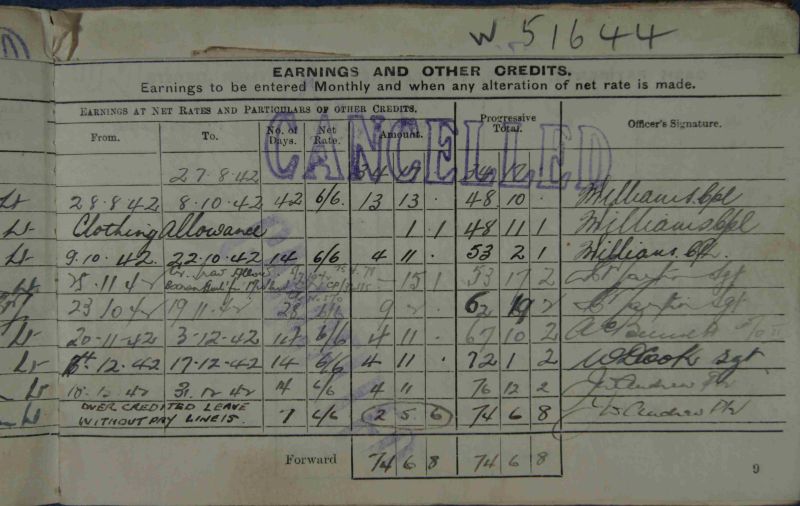 W 51644
EARNINGS AND OTHER CREDITS.
Earnings to be entered Monthly and when any alteration of net rate is made.
EARNINGS AT NET RATES AND PARTICULARS OF OTHER CREDITS.
From. To. No. of Days. Net Rate. Amount. Progressive Total. Officer's Signature.
CANCELLED
27.8.42 34 17 34 17
28.8.42 8.10.42 42 6/6 13 13 . 48 10 . Williams. Cpl
Clothing Allowance 1 1 48 11 1 Williams Cpl
9.10.42. 22.10.42 14 6/6 4 11 . 53 2 1 Williams. Cpl.
25.11.42 15 1 53 17 2 Sgt
23 10 42 19 11 42 28 6/6 9 2 62 19 2 Sgt
20-11-42 3-12-42 14 6/6 4 11 67 10 2
4-12-42 17-12-42 14 6/6 4 11 . 72 1 2 Cook Sgt
18.12.42 31.12.42 14 6/6 4 11 76 12 2 Andrew
OVER CREDITED LEAVE
WITHOUT PAY LINE 15. 7 6/6 2 5 6 74 6 8 Andrew
Forward 74 6 8 74 6 8
9